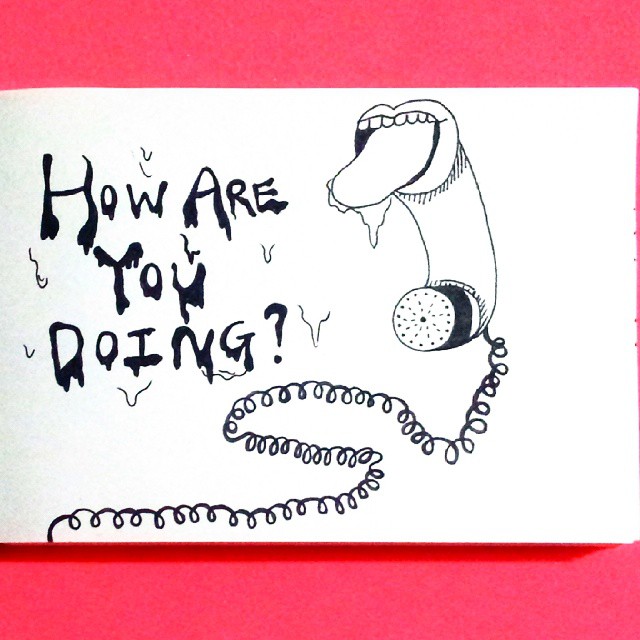 How Are
You
Doing?